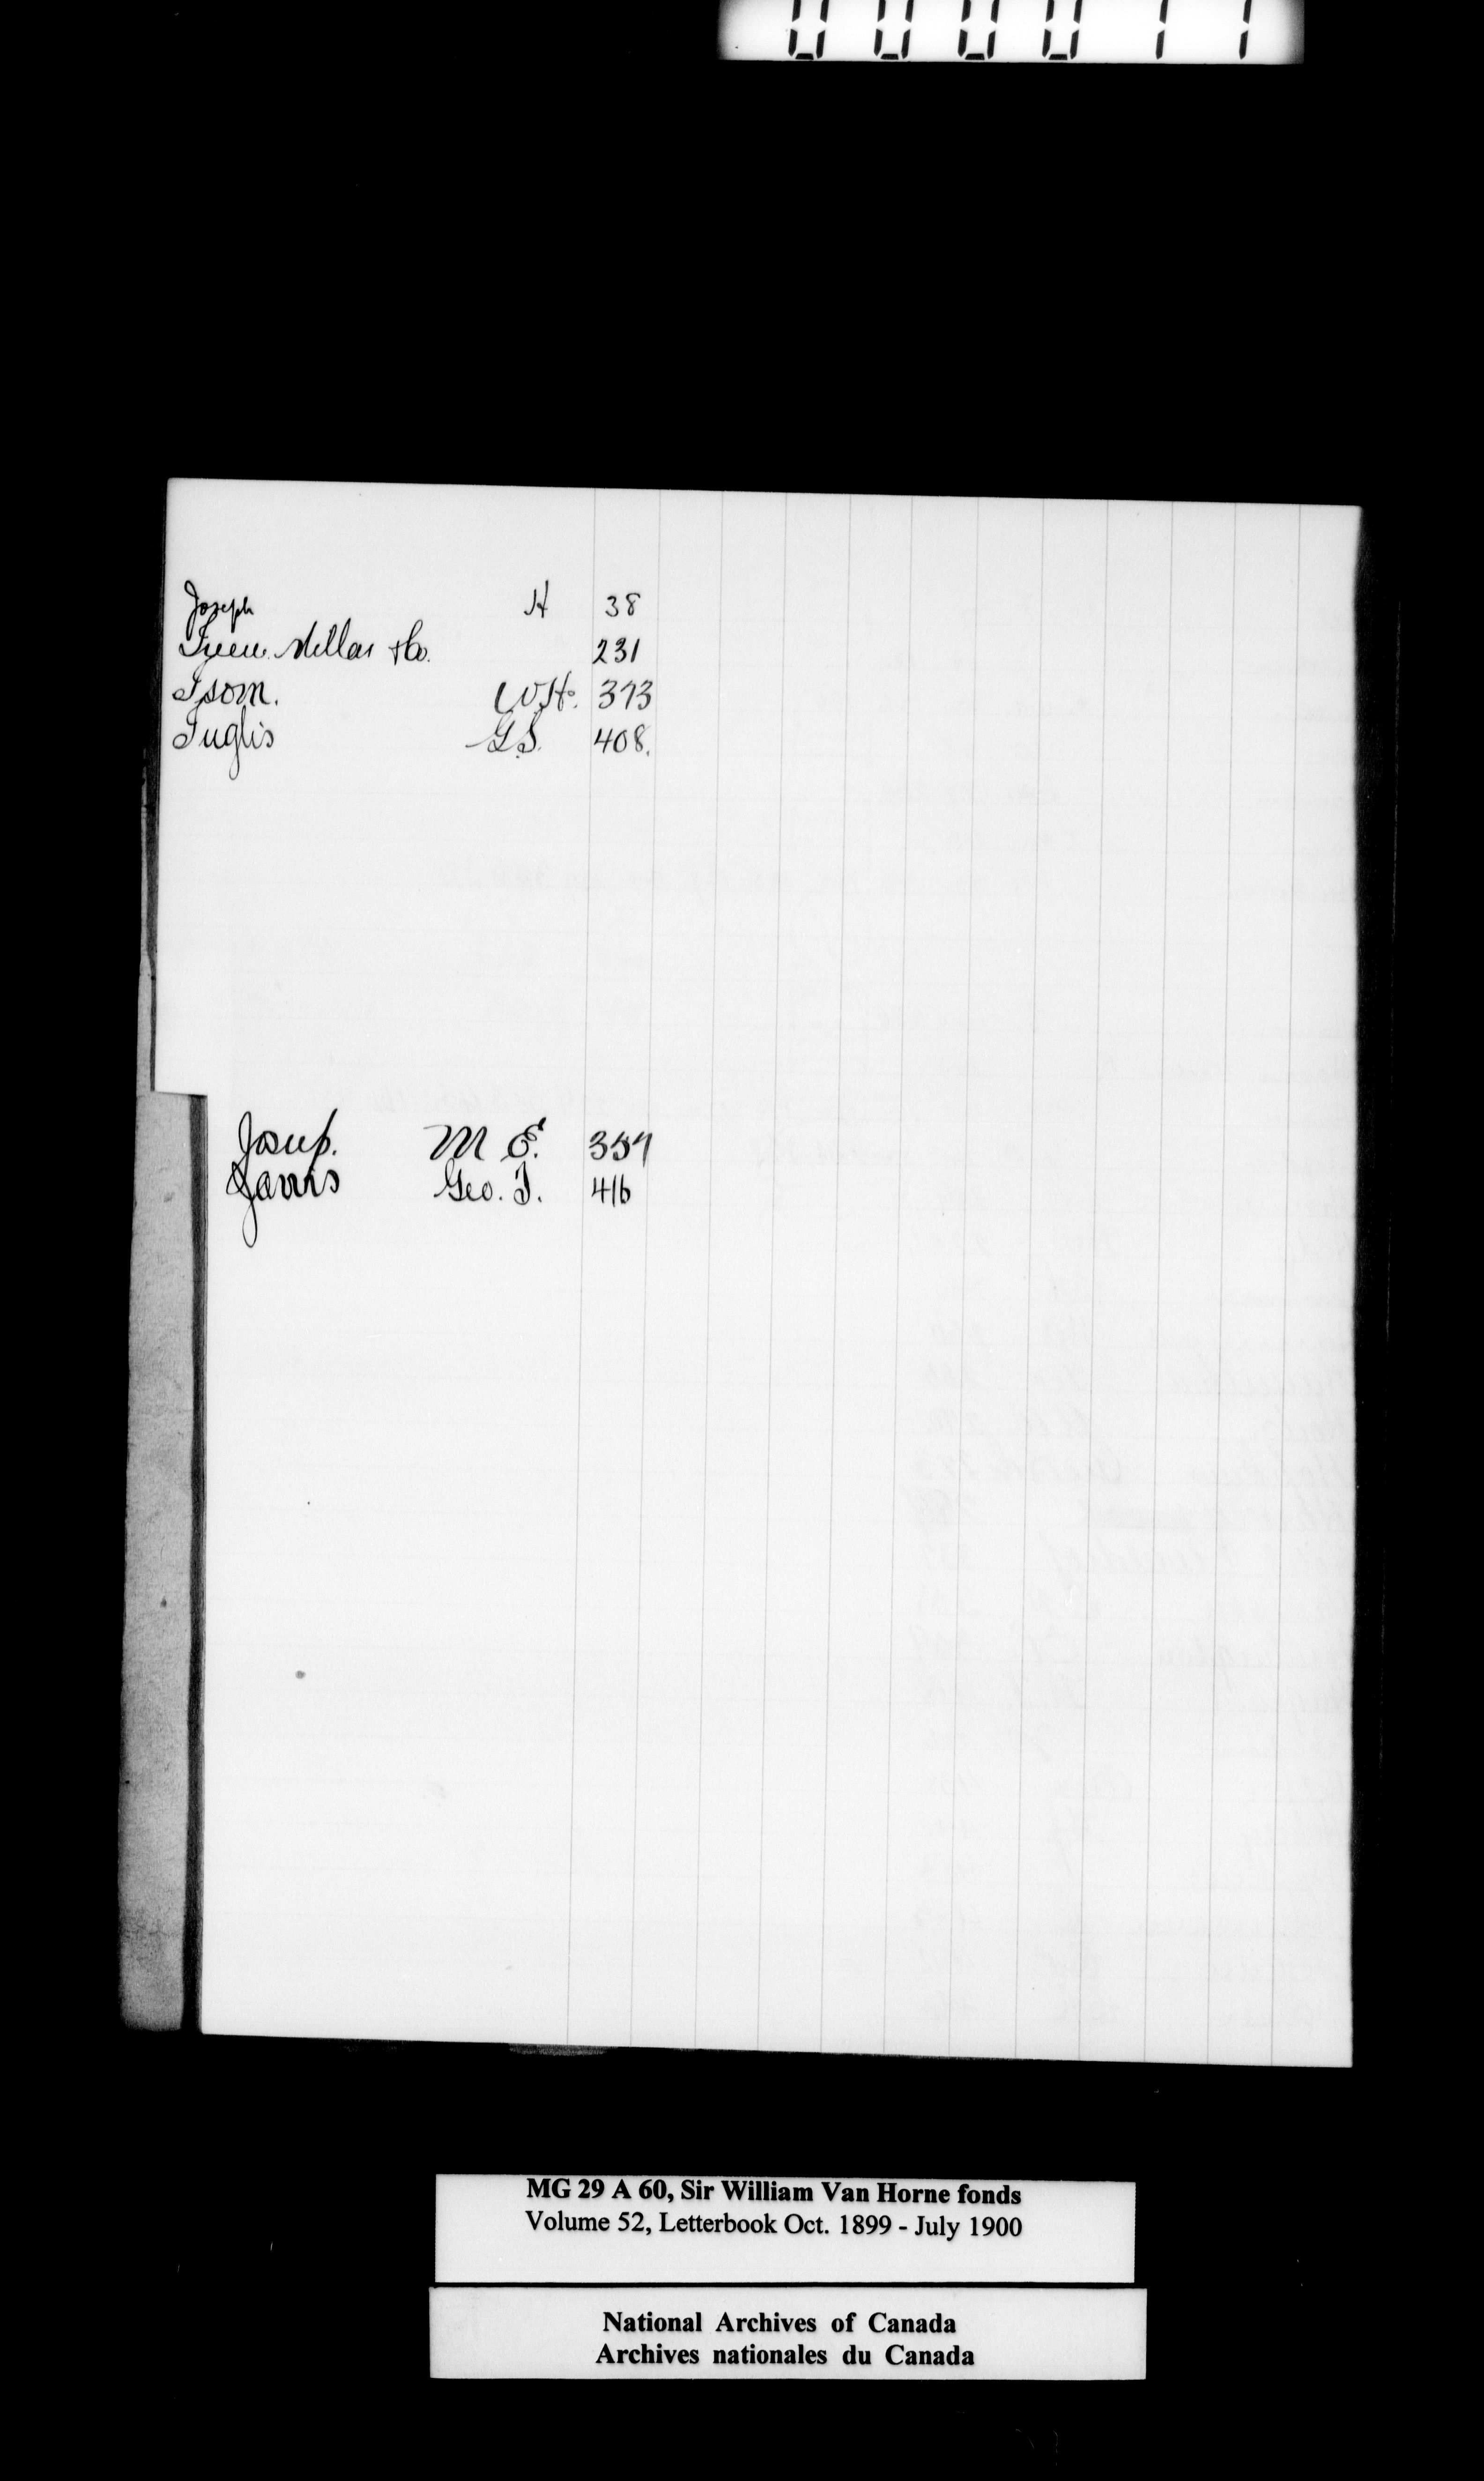 000011
Joseph H 38
& Co. 231
Isom. W.H. 373
Inglis G.S. 408.
Jesup. M E. 357
Jarvis Geo. T. 416
MG 29 A 60, Sir William Van Horne fonds
Volume 52, Letterbook Oct. 1899 - July 1900
National Archives of Canada
Archives nationales du Canada